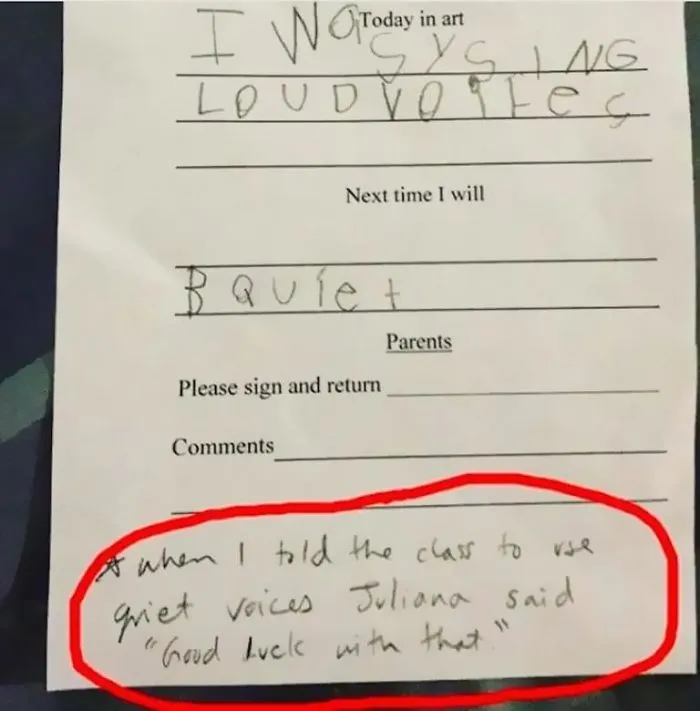 Today in art
I WAS YSING
LOUD VOICES
Next time I will
B QUiet
Parents
Please sign and return
Comments
* when I told the class to use
quiet voices Juliana said
"Good Luck with that."